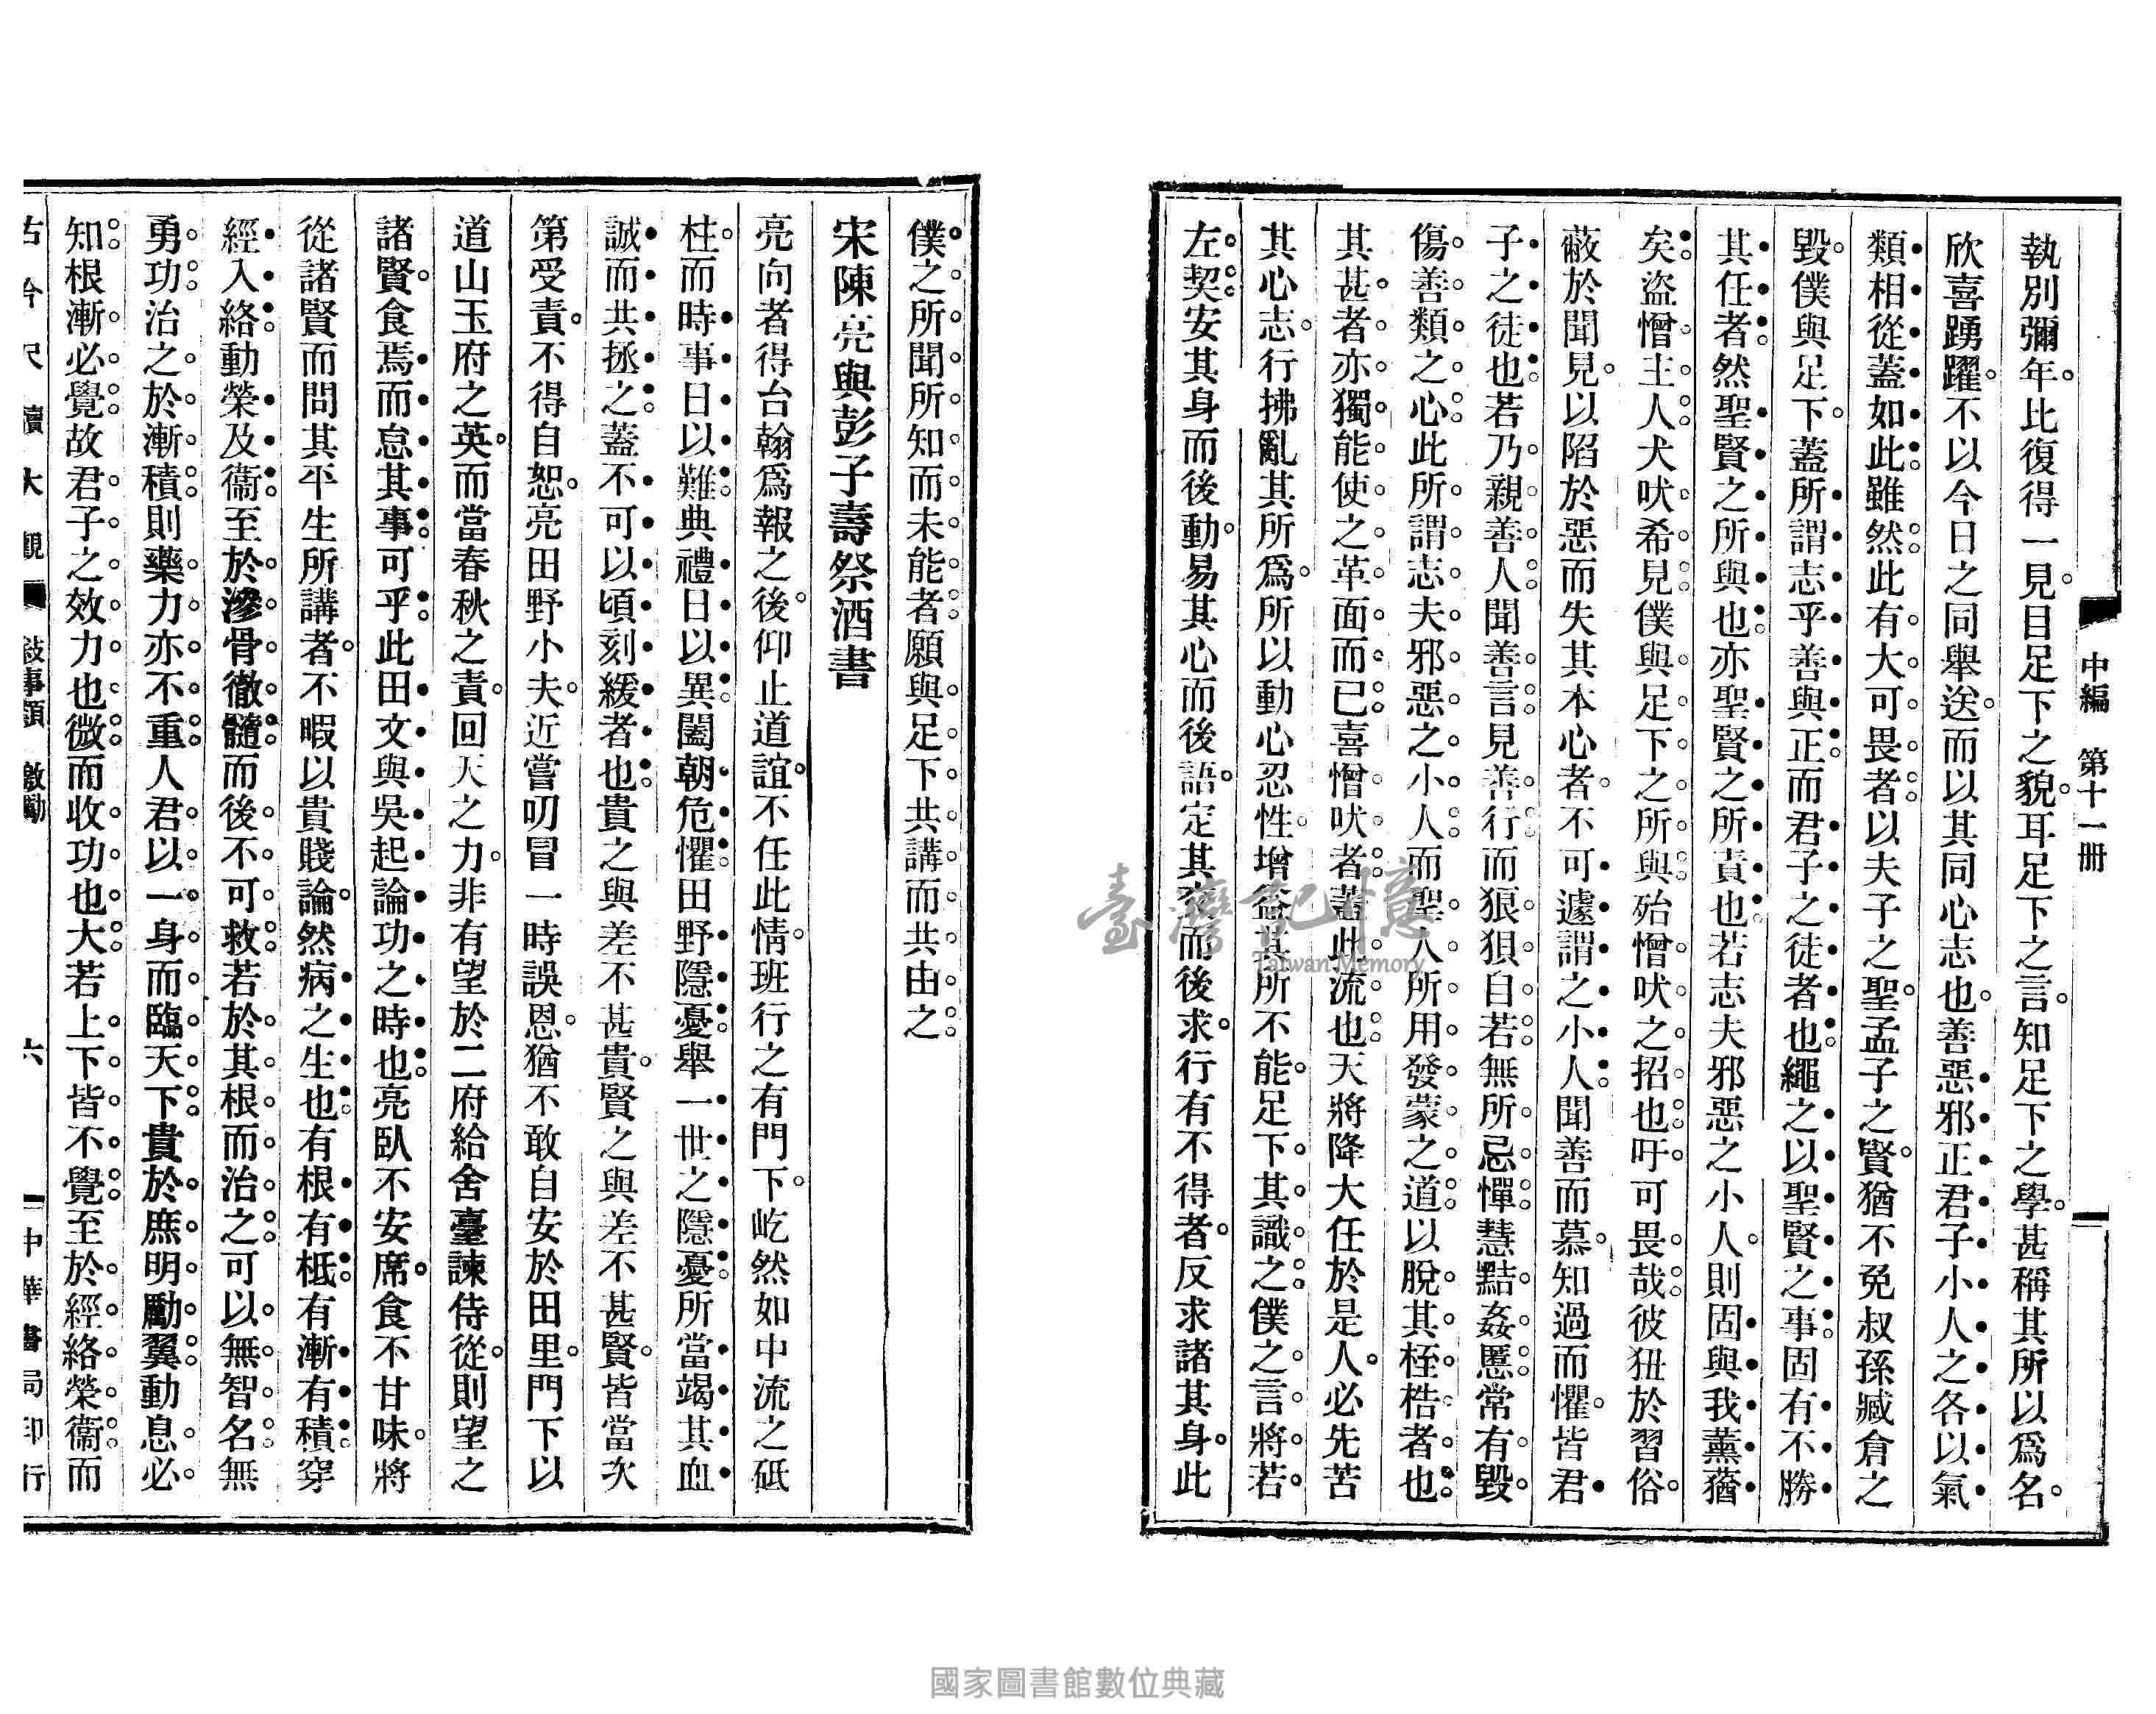 中編　第十一册
執別彌年。比復得一見。目足下之貌。耳足下之言。知足下之學。甚稱其所以爲名。
欣喜踴躍。不以今日之同舉送。而以其同心志也。善惡邪正君子小人之各以氣
類相從。蓋如此。雖然此有大可畏者。以夫子之聖。孟子之賢。猶不免叔孫臧倉之
毀。僕與足下。蓋所謂志乎善與正。而君子之徒者也。繩之以聖賢之事。固有不勝
其任者。然聖賢之所與也。亦聖賢之所責也。若志夫邪惡之小人。則固與我薰蕕
矣。盜憎主人。犬吠希見。僕與足下之所與。殆憎吠之招也。吁可畏哉。彼狃於習俗。
蔽於聞見。以陷於惡而失其本心者。不可遽謂之小人。聞善而慕。知過而懼。皆君
子之徒也。若乃親善人。聞善言。見善行。而狼狽自若。無所忌憚。慧黠姦慝。常有毀
傷善類之心。此所謂志夫邪惡之小人。而聖人所用發蒙之道。以脫其桎梏者也。
其甚者。亦獨能使之革面而已。喜憎吠者。蓋此流也。天將降大任於是人。必先苦
其心志。行拂亂其所爲。所以動心忍性。增益其所不能。足下。其識之。僕之言。將若
左契。安其身而後動。易其心而後語。定其交而後求。行有不得者。反求諸其身。此
僕之所聞所知而未能者。願與足下共講而共由之。
宋陳亮與彭子壽祭酒書
亮向者得台翰爲報之後。仰止道誼。不任此情。班行之有門下。屹然如中流之砥
柱。而時事日以難。典禮日以異。闔朝危懼。田野隱憂。舉一世之隱憂。所當竭其血
誠而共拯之。蓋不可以頃刻緩者也。貴之與差不甚貴。賢之與差不甚賢。皆當次
第受責。不得自恕。亮田野小夫。近嘗叨冒一時誤恩。猶不敢自安於田里。門下以
道山玉府之英。而當春秋之責。回天之力。非有望於二府給舍臺諫侍從。則望之
諸賢。食焉而怠其事。可乎。此田文與吳起論功之時也。亮臥不安席。食不甘味。將
從諸賢而問其平生所講者。不暇以貴賤論。然病之生也。有根有柢。有漸有積。穿
經入絡。動榮及衞。至於滲骨徹髓。而後不可救。若於其根而治之。可以無智名無
勇功。治之於漸積。則藥力亦不重。人君以一身而臨天下。貴於庶明勵翼。動息必
知。根漸必覺。故君子之效力也微。而收功也大。若上下皆不覺。至於經絡榮衞而
古今尺牘大觀　敍事類　激勵　六　中華書局印行
臺灣記憶
Taiwan Memory
國家圖書館數位典藏